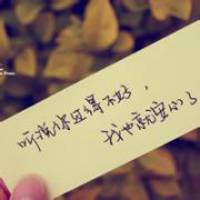 听说你过得不好，
我也就安心了